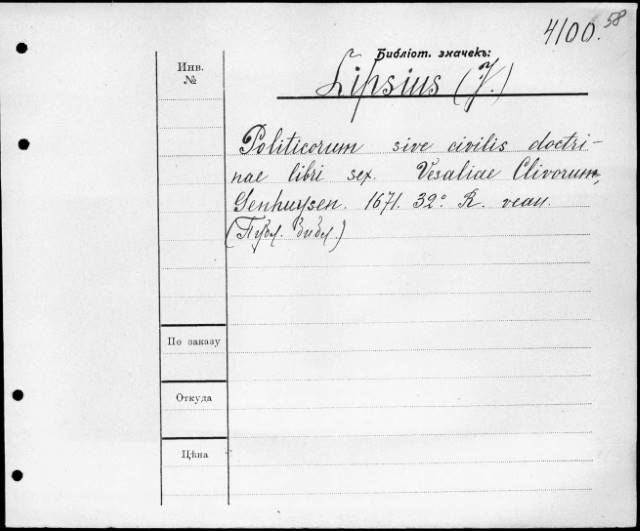 4100. 58
Библіот. значекъ:
Lipsius (J.)
Инв.
№
Politicorum sive civilis doctri-
nae libri sex. Vesaliae Clivorum,
Senhuysen. 1671. 32° R. veau.
(Публ. библ.)
По заказу
Откуда
Цѣна